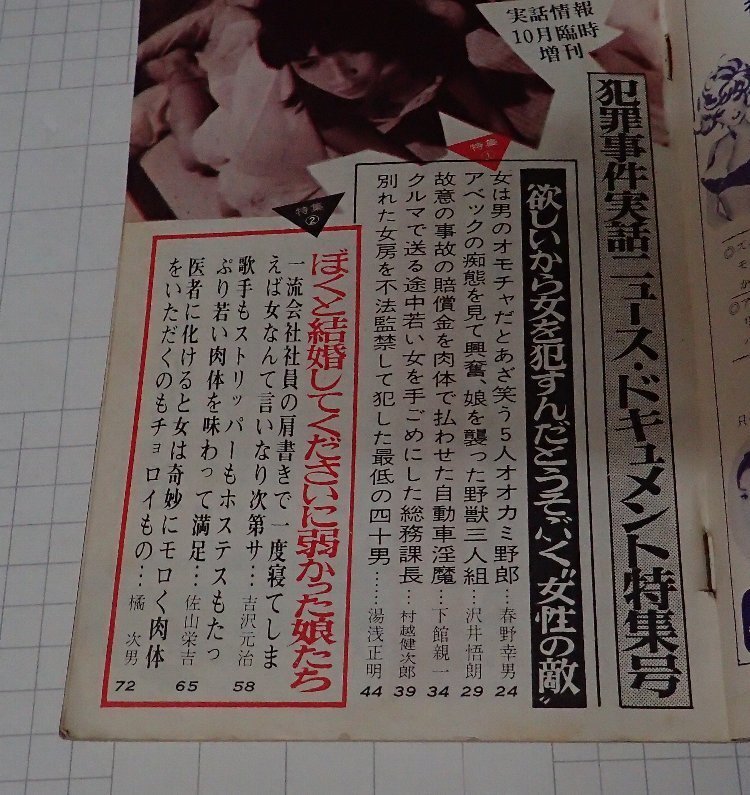 実話情報
10月臨時
増刊
犯罪事件実話ニュース・ドキュメント特集号
特集①
欲しいから女を犯すんだとうそぶく“女性の敵”
女は男のオモチャだとあざ笑う5人オオカミ野郎……春野幸男 24
アベックの痴態を見て興奮、娘を襲った野獣三人組……沢井悟朗 29
故意の事故の賠償金を肉体で払わせた自動車淫魔……下館親一 34
クルマで送る途中若い女を手ごめにした総務課長……村越健次郎 39
別れた女房を不法監禁して犯した最低の四十男……湯浅正明 44
特集②
ぼくと結婚してくださいに弱かった娘たち
一流会社社員の肩書きで一度寝てしま
えば女なんて言いなり次第サ…吉沢元治 58
歌手もストリッパーもホステスもたっ
ぷり若い肉体を味わって満足…佐山栄吉 65
医者に化けると女は奇妙にモロく肉体
をいただくのもチョロイもの…橘次男 72